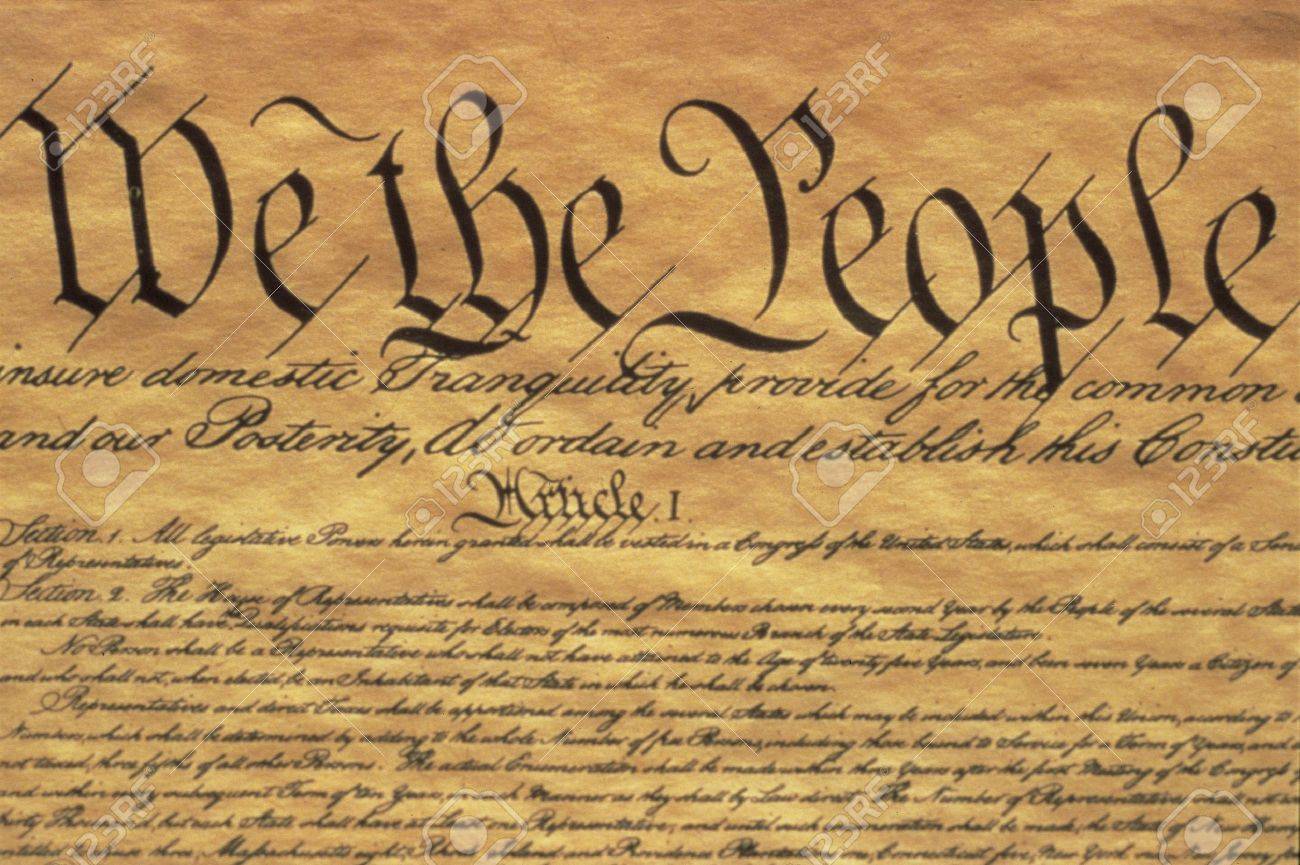 We the People
insure domestic Tranquility, provide for the common
and our Posterity, do ordain and establish this Constitu
Article. I.
Section. 1. All legislative Powers herein granted shall be vested in a Congress of the United States, which shall consist of a Sen
of Representatives.
Section. 2. The House of Representatives shall be composed of Members chosen every second Year by the People of the several State
in each State shall have the Qualifications requisite for Electors of the most numerous Branch of the State Legislature.
No Person shall be a Representative who shall not have attained to the Age of twenty five Years, and been seven Years a Citizen of
and who shall not, when elected, be an Inhabitant of that State in which he shall be chosen.
Representatives and direct Taxes shall be apportioned among the several States which may be included within this Union, according to
Numbers, which shall be determined by adding to the whole Number of free Persons, including those bound to Service for a Term of Years, and
not taxed, three fifths of all other Persons. The actual Enumeration shall be made within three Years after the first Meeting of the Congress
and within every subsequent Term of ten Years, in such Manner as they shall by Law direct. The Number of Representatives shall not
thirty Thousand, but each State shall have at Least one Representative; and until such enumeration shall be made, the State of New
three, Massachusetts eight, Rhode Island and Providence Plantations Connecticut five, New York
123RF